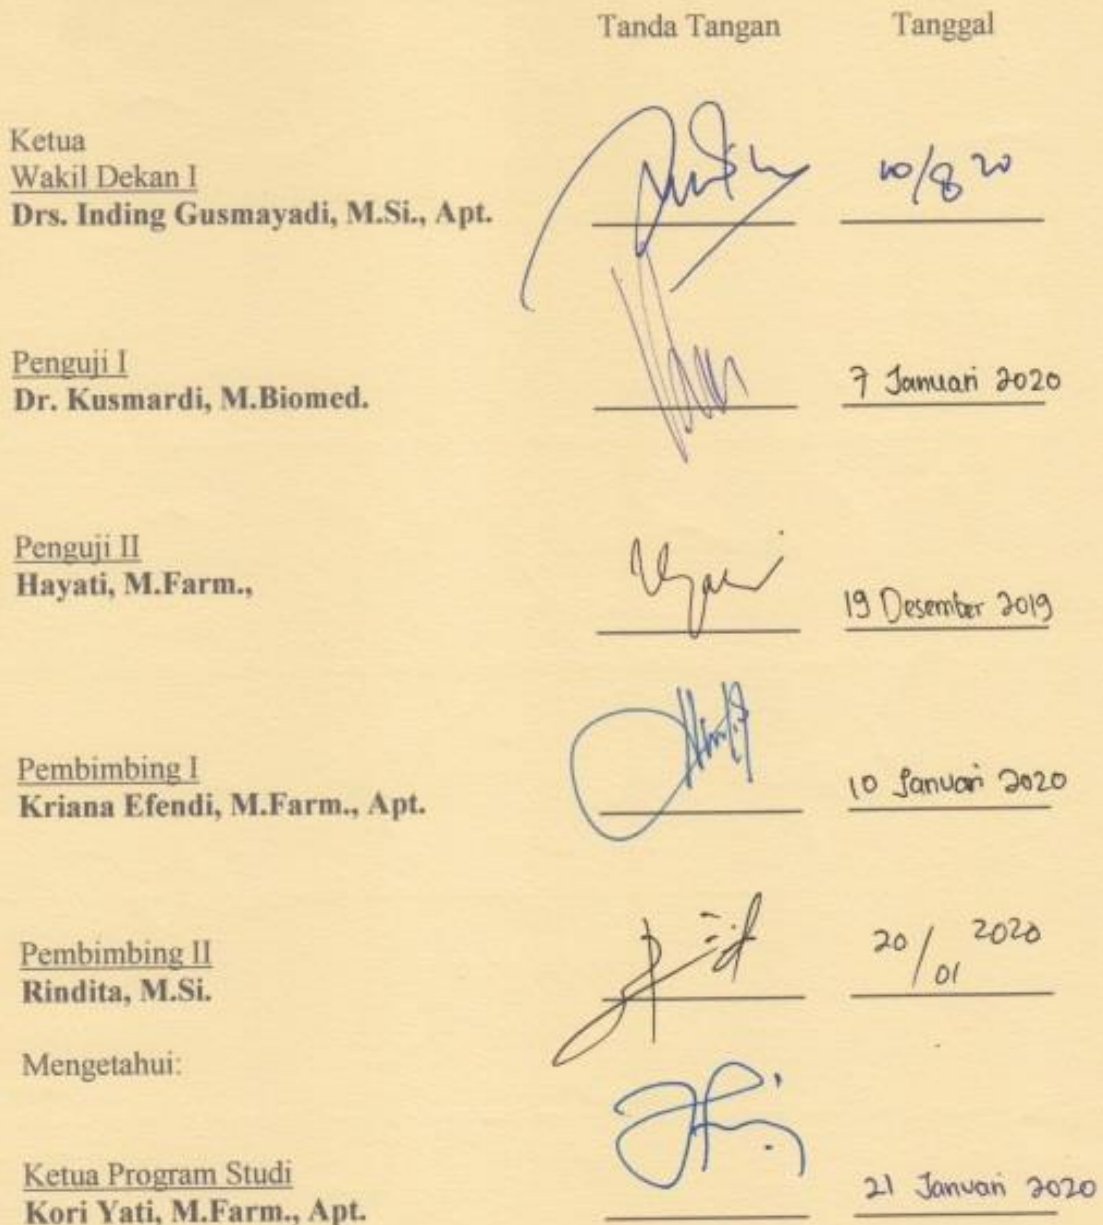 Tanda Tangan Tanggal
Ketua
Wakil Dekan I
Drs. Inding Gusmayadi, M.Si., Apt.
10/8 20
Penguji I
Dr. Kusmardi, M.Biomed.
7 Januari 2020
Penguji II
Hayati, M.Farm.,
19 Desember 2019
Pembimbing I
Kriana Efendi, M.Farm., Apt.
10 Januari 2020
Pembimbing II
Rindita, M.Si.
20/01 2020
Mengetahui:
Ketua Program Studi
Kori Yati, M.Farm., Apt.
21 Januari 2020